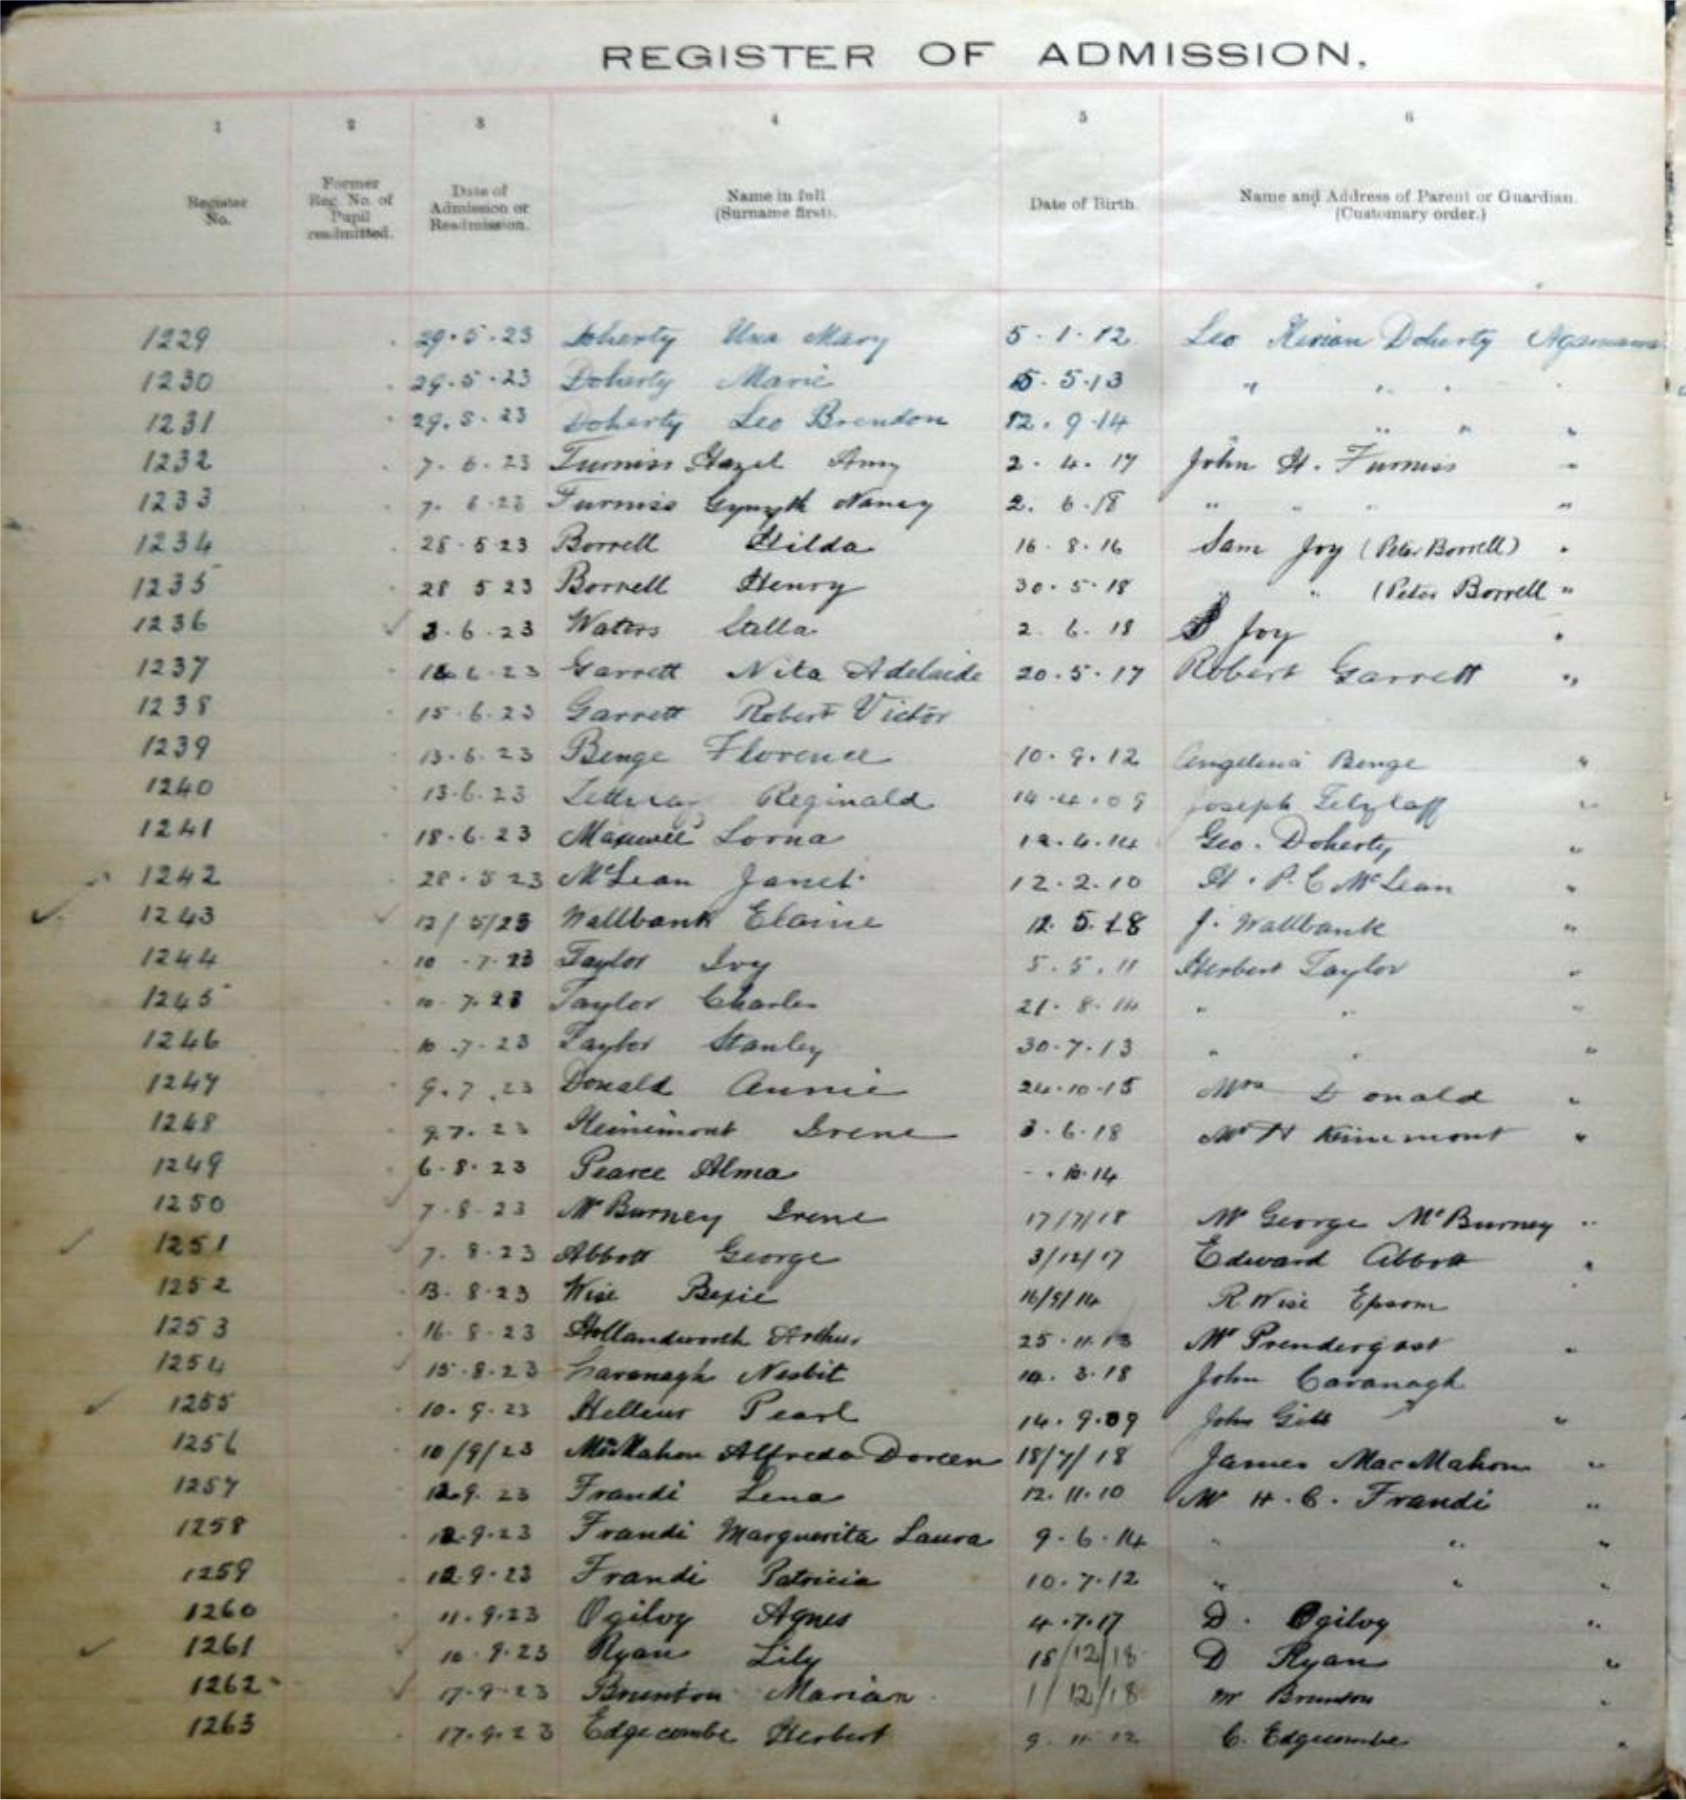 REGISTER OF ADMISSION.
1 2 3 4 5 6
Register No. Former Reg. No. of Pupil readmitted. Date of Admission or Readmission. Name in full (Surname first). Date of Birth. Name and Address of Parent or Guardian. (Customary order.)
1229 29.5.23 Doherty Una Mary 5.1.12 Leo Kivian Doherty
1230 29.5.23 Doherty Marie 5.5.13 " " "
1231 29.5.23 Doherty Leo Brendon 12.9.14 " " " "
1232 7.6.23 Furniss Hazel Amy 2.4.17 John H. Furniss "
1233 7.6.23 Furniss Gynyth Nancy 2.6.18 " " " "
1234 28.5.23 Borrell Hilda 16.8.16 Sam Joy (Peter Borrell) "
1235 28 5 23 Borrell Henry 30.5.18 " " (Peter Borrell "
1236 3.6.23 Waters Stella 2.6.18 Joy "
1237 6.23 Garrett Nita Adelaide 20.5.17 Robert Garrett "
1238 15.6.23 Garrett Robert Victor
1239 13.6.23 Benge Florence 10.9.12 Angelena Benge "
1240 13.6.23 Reginald 14.4.09 Joseph Tetzlaff "
1241 18.6.23 Maxwell Lorna 12.4.14 Geo. Doherty "
1242 28.5 23 McLean Janet 12.2.10 H. P. C McLean "
1243 12/5/23 Wallbank Elaine 12.5.18 J. Wallbank "
1244 10.7.23 Taylor Ivy 5.5.11 Herbert Taylor "
1245 10.7.23 Taylor Charles 21.8.14 " " "
1246 10.7.23 Taylor Stanley 30.7.13 " " "
1247 9.7.23 Donald Annie 24.10.15 Mrs Donald "
1248 9.7.23 Heinimont Irene 3.6.18 Mr H Keinemont "
1249 6.8.23 Pearce Alma -.10.14
1250 7.8.23 McBurney Irene 17/7/18 Mr George McBurney "
1251 7.8.23 Abbott George 3/12/17 Edward Abbott "
1252 13.8.23 Wise Bexie 16/9/14 R Wise Epsom
1253 16.8.23 Hollandsworth Arthur 25.11.13 Mr Prendergast "
1254 15.8.23 Cavanagh Nesbit 10.3.18 John Cavanagh
1255 10.9.23 Helleur Pearl 14.9.09 John Gill "
1256 10/9/23 MacMahon Alfreda Doreen 18/7/18 James MacMahon "
1257 12.9.23 Frandi Lena 12.11.10 Mr H. C. Frandi "
1258 12.9.23 Frandi Marguerita Laura 9.6.14 " " "
1259 12.9.23 Frandi Patricia 10.7.12 " " "
1260 11.9.23 Ogilvy Agnes 4.7.17 D. Ogilvy "
1261 10.9.23 Ryan Lily 18/12/18 D Ryan "
1262 17.9.23 Brunton Marian 1/12/18 Mr Brunton "
1263 17.9.23 Edgecombe Herbert 9.11.12 C. Edgecombe "